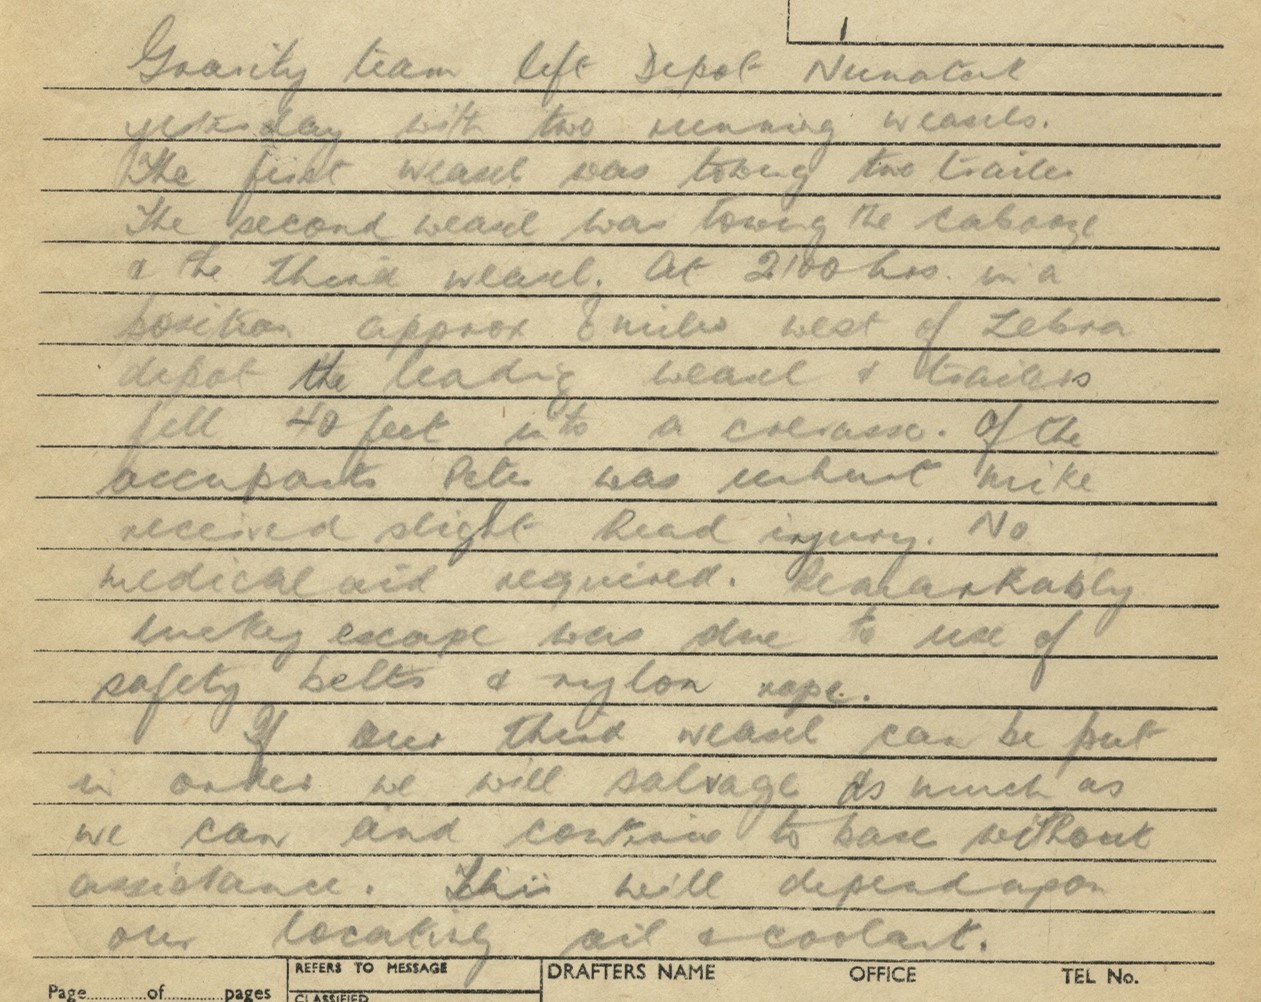 Gravity team left Depot Nunatak
yesterday with two running weasels.
The first weasel was towing two trailers
The second weasel was towing the caboose
& the third weasel. At 2100 hrs. in a
position approx 8 miles west of Zebra
depot the leading weasel & trailers
fell 40 feet into a crevasse. Of the
occupants Peter was unhurt Mike
received slight head injury. No
medical aid required. Remarkably
lucky escape was due to use of
safety belts & nylon rope.
If our third weasel can be put
in order we will salvage as much as
we can and continue to base without
assistance. This will depend upon
our locating oil & coolant.
Page.............of.............pages
REFERS TO MESSAGE
CLASSIFIED
DRAFTERS NAME OFFICE TEL No.